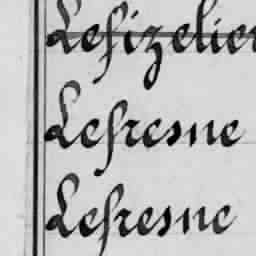 Lefizelier
Lefresne
Lefresne